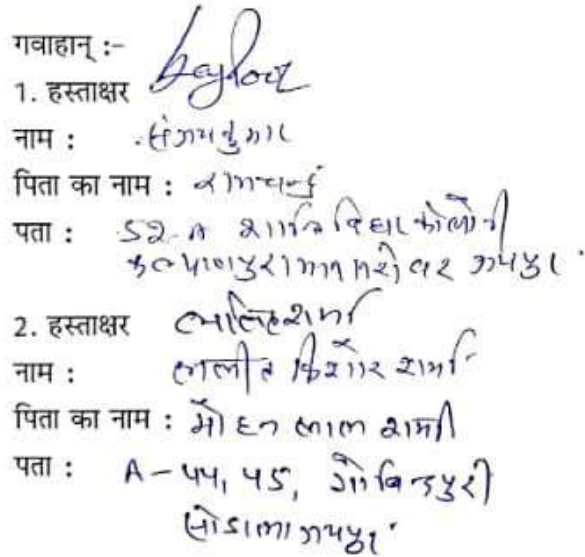 गवाहान् :-
1. हस्ताक्षर
नाम : संजय कुमार
पिता का नाम : रामचन्द्र
पता : 52-A शान्ति विहार कोलोनी
कल्याणपुरा सांगानेर जयपुर
2. हस्ताक्षर ललित शर्मा
नाम : ललीत किशोर शर्मा
पिता का नाम : मोहन लाल शर्मा
पता : A-44, 45, गोविन्दपुरी
सोडाला जयपुर